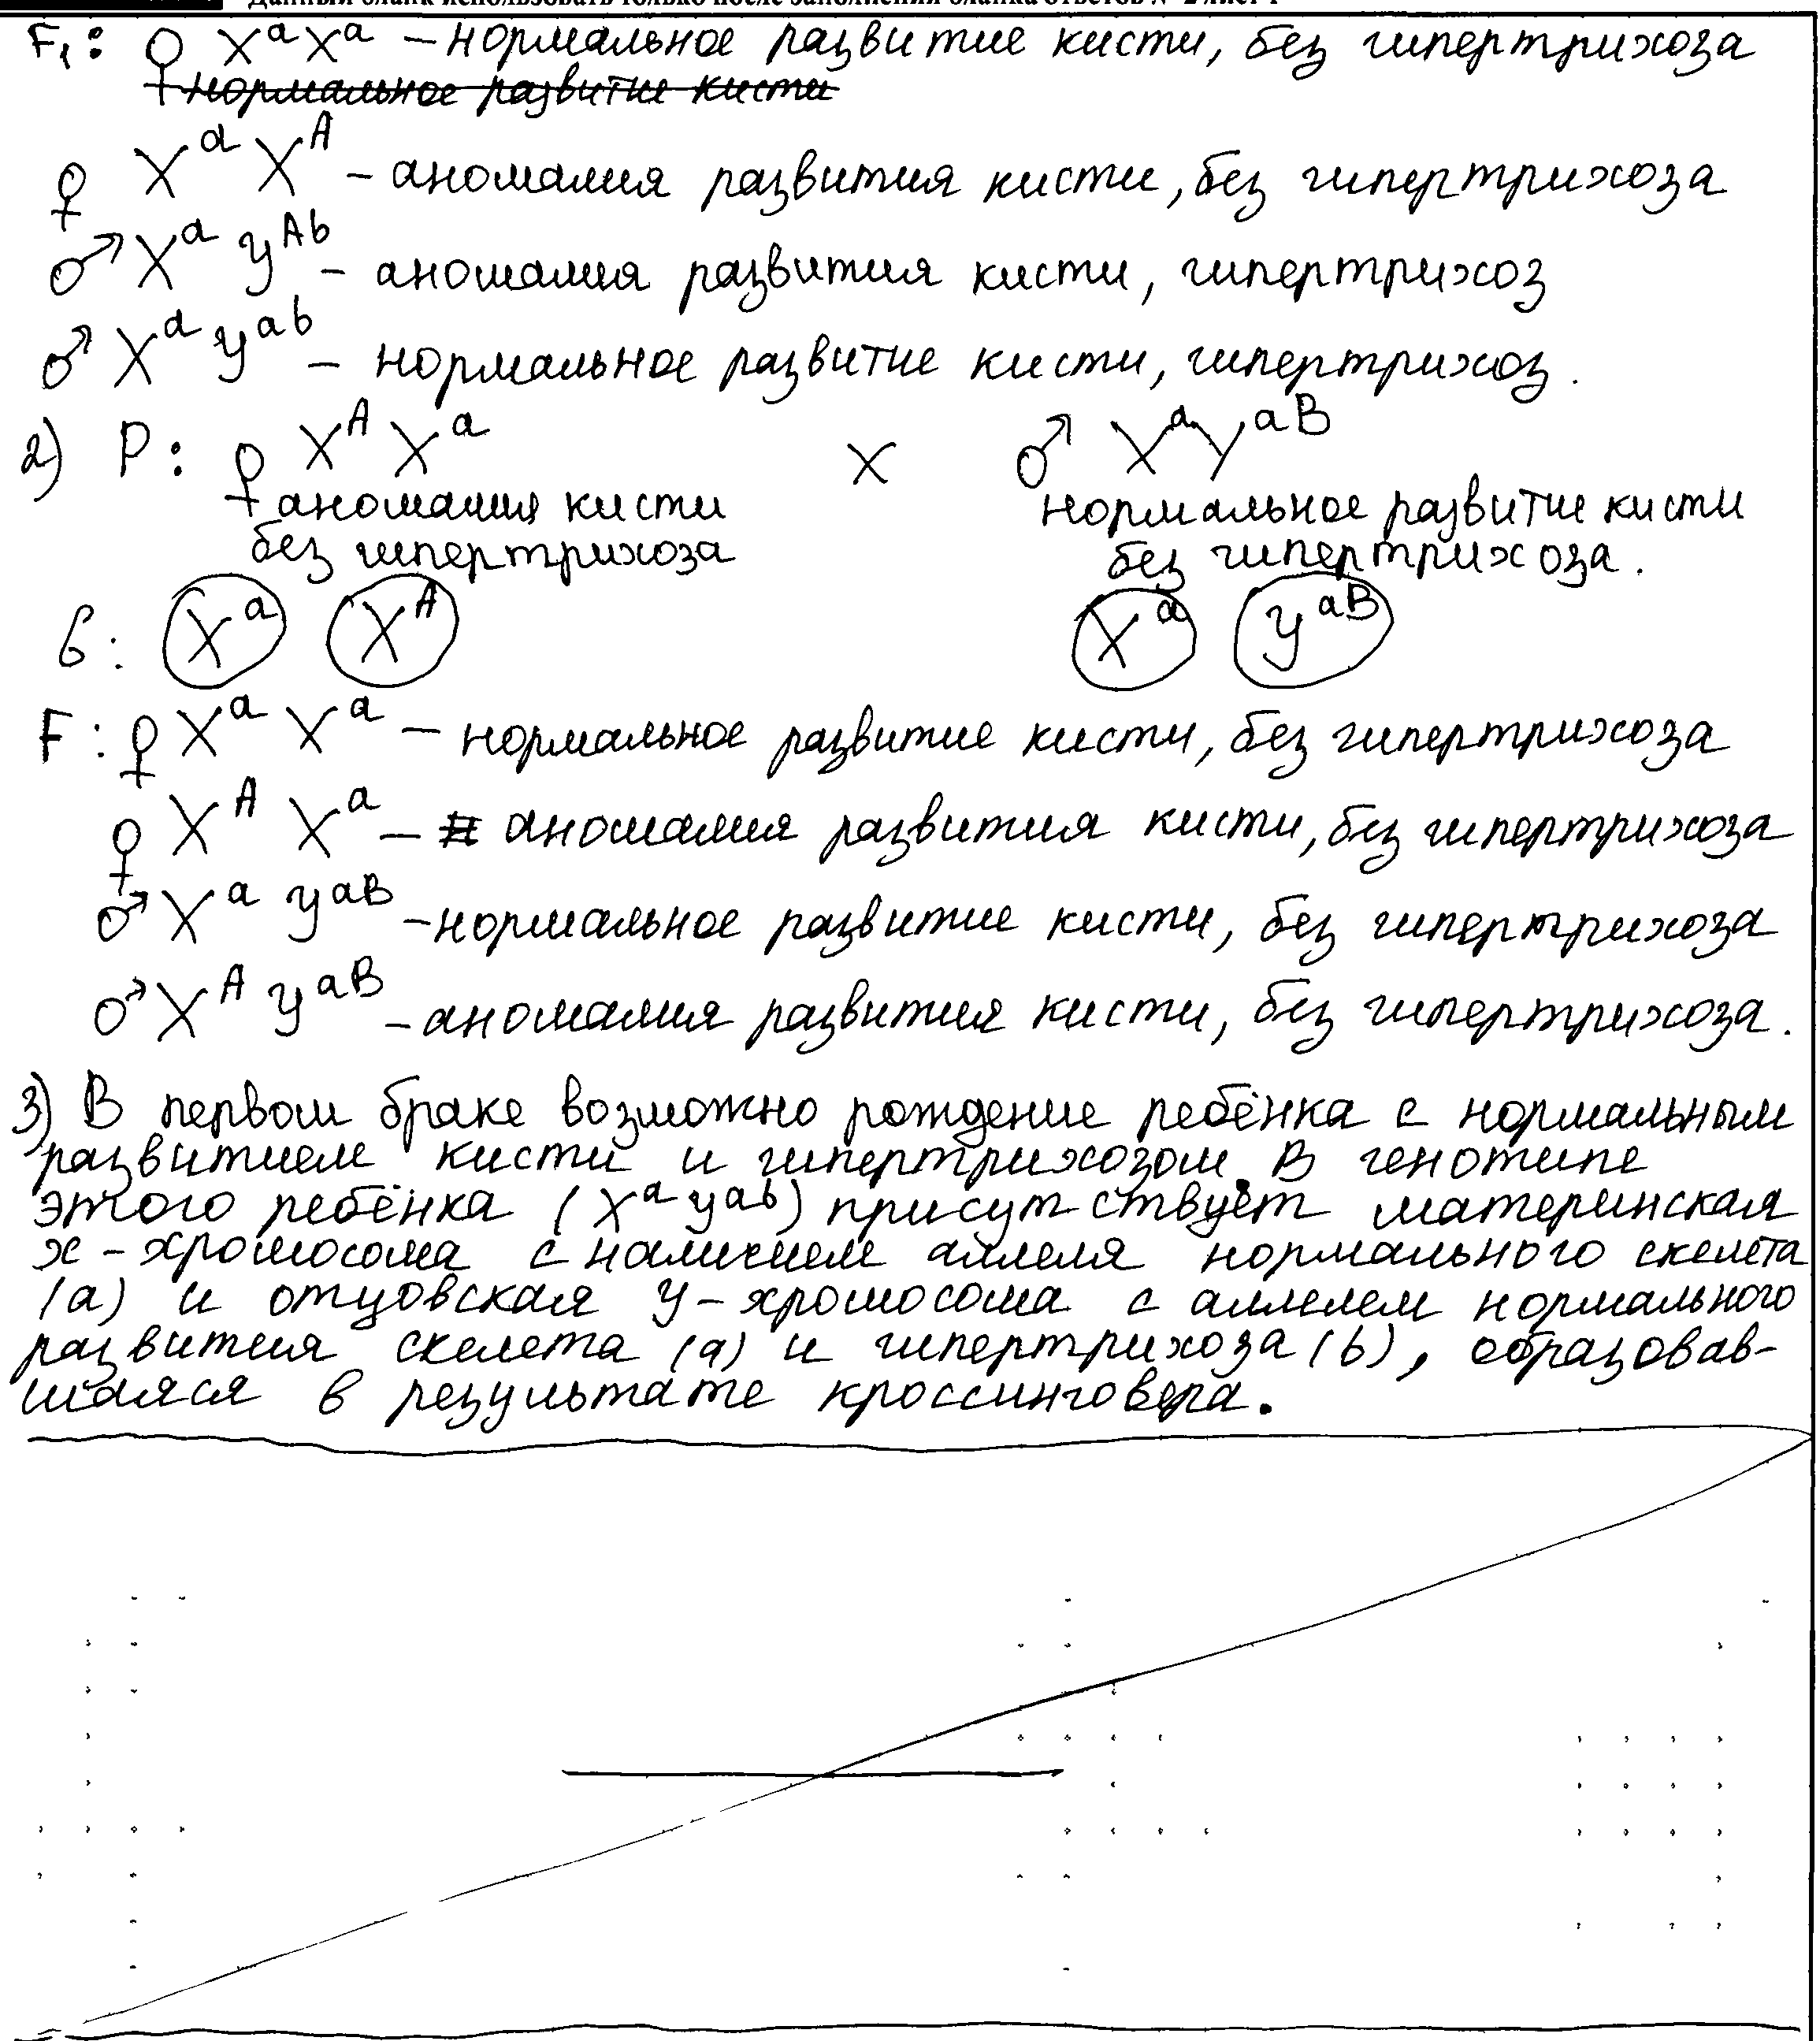 Данный бланк использовать только после заполнения бланка ответов № 2 лист 1
F₁: ♀ Xᵃ Xᵃ – нормальное развитие кисти, без гипертрихоза
нормальное развитие кисти
♀ Xᵃ Xᴬ – аномалия развития кисти, без гипертрихоза
♂ Xᵃ Yᴬᵇ – аномалия развития кисти, гипертрихоз
♂ Xᵃ Yᵃᵇ – нормальное развитие кисти, гипертрихоз.
2) P: ♀ Xᴬ Xᵃ x ♂ Xᵃ Yᵃᴮ
аномалия кисти нормальное развитие кисти
без гипертрихоза без гипертрихоза.
G: Xᵃ Xᴬ Xᵃ Yᵃᴮ
F: ♀ Xᵃ Xᵃ – нормальное развитие кисти, без гипертрихоза
♀ Xᴬ Xᵃ – аномалия развития кисти, без гипертрихоза
♂ Xᵃ Yᵃᴮ – нормальное развитие кисти, без гипертрихоза
♂ Xᴬ Yᵃᴮ – аномалия развития кисти, без гипертрихоза.
3) В первом браке возможно рождение ребёнка с нормальным
развитием кисти и гипертрихозом. В генотипе
этого ребёнка (Xᵃ Yᵃᵇ) присутствует материнская
х-хромосома с наличием аллеля нормального скелета
(а) и отцовская У-хромосома с аллелем нормального
развития скелета (а) и гипертрихоза (b), образовав-
шаяся в результате кроссинговера.